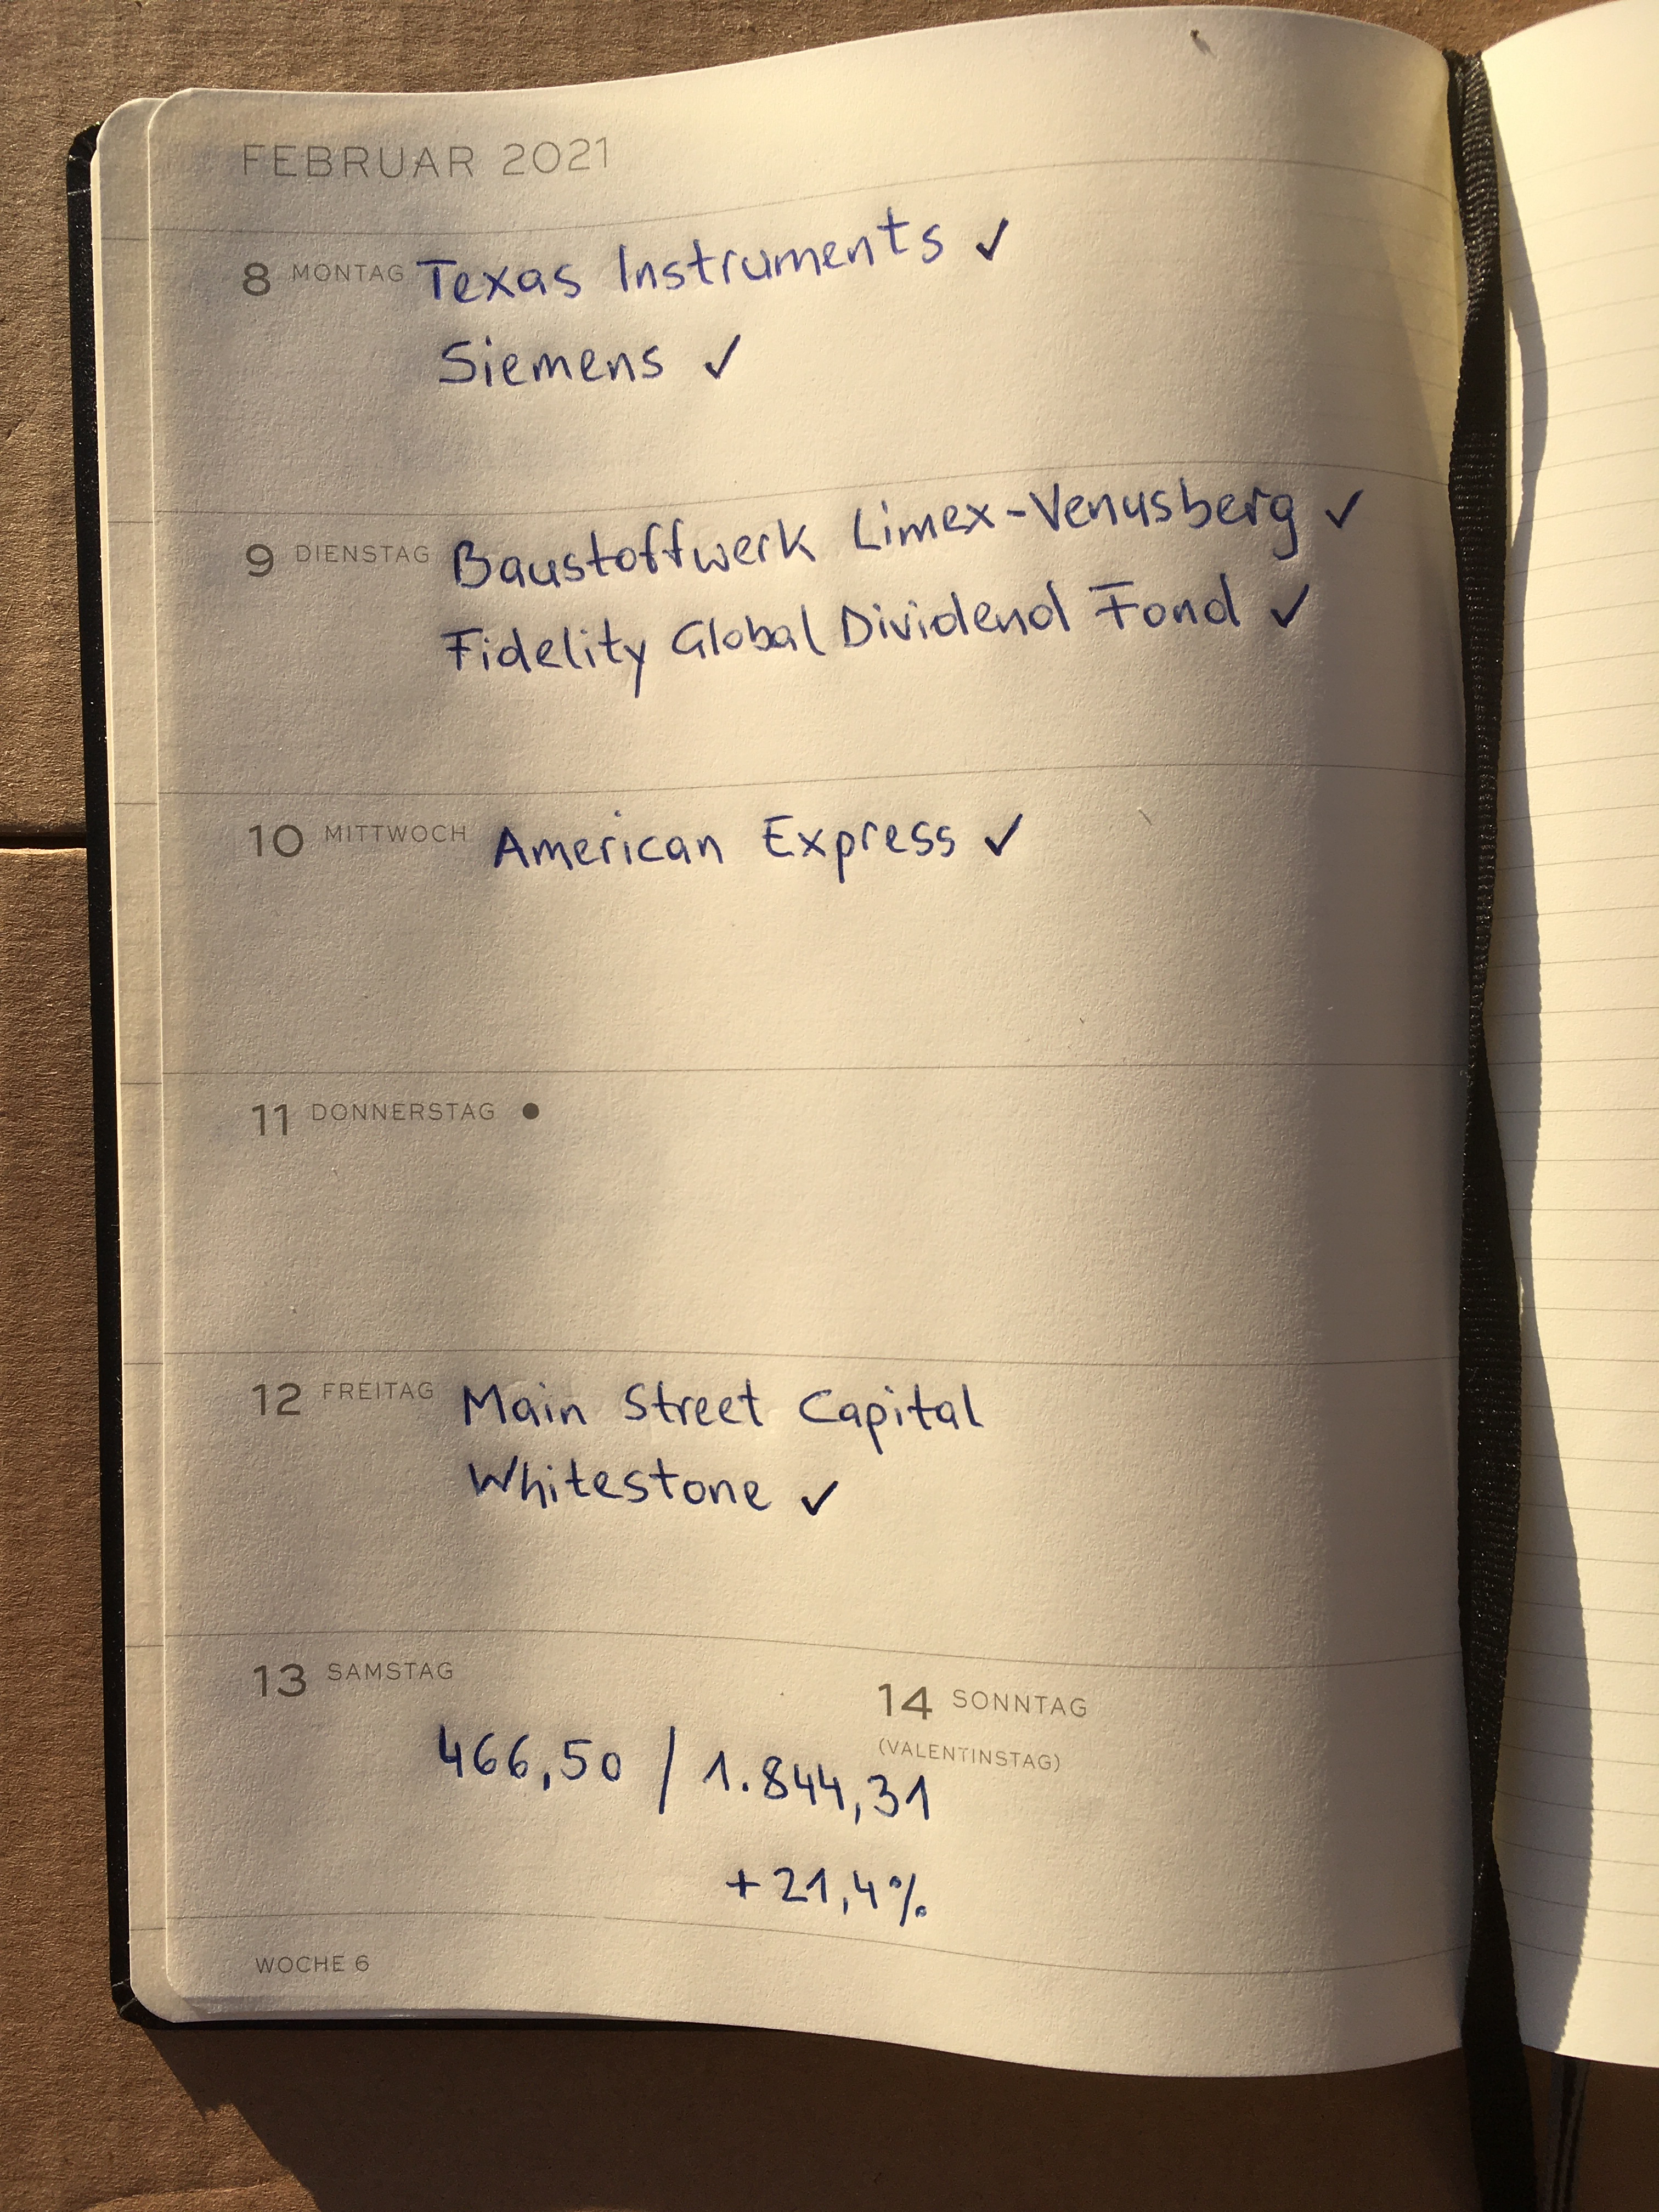 FEBRUAR 2021
8 MONTAG Texas Instruments ✓
Siemens ✓
9 DIENSTAG Baustoffwerk Limex-Venusberg ✓
Fidelity Global Dividend Fond ✓
10 MITTWOCH American Express ✓
11 DONNERSTAG ●
12 FREITAG Main Street Capital
Whitestone ✓
13 SAMSTAG
14 SONNTAG
(VALENTINSTAG)
466,50 / 1.844,31
+21,4%
WOCHE 6